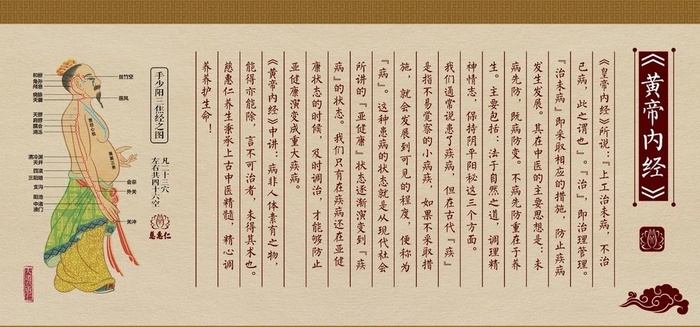 《黄帝内经》
《皇帝内经》所说：“上工治未病，不治
已病，此之谓也”。“治”，即治理管理。
“治未病”即采取相应的措施，防止疾病
发生发展。其在中医的主要思想是：未
病先防，既病防变。不病先防重在于养
生。主要包括：法于自然之道，调理精
神情志，保持阴平阳秘这三个方面。
我们通常说患了疾病，但在古代“疾”
是指不易觉察的小病疾，如果不采取措
施，就会发展到可见的程度，便称为
“病”。这种患病的状态就是从现代社会
所讲的“亚健康”状态逐渐演变到“疾
病”的状态。我们只有在疾病还在亚健
康状态的时候，及时调治，才能够防止
亚健康演变成重大疾病。
《黄帝内经》中讲：病非人体素有之物，
能得亦能除，言不可治者，未得其术也。
慈惠仁养生秉承上古中医精髓，精心调
养养护生命！
手少阳三焦经之图
凡二十三穴
左右共四十六空
慈惠仁
丝竹空
医风
会宗
外关
关冲
和髎
角孙
天井
四渎
三阳络
支沟
阳池
中渚
液门